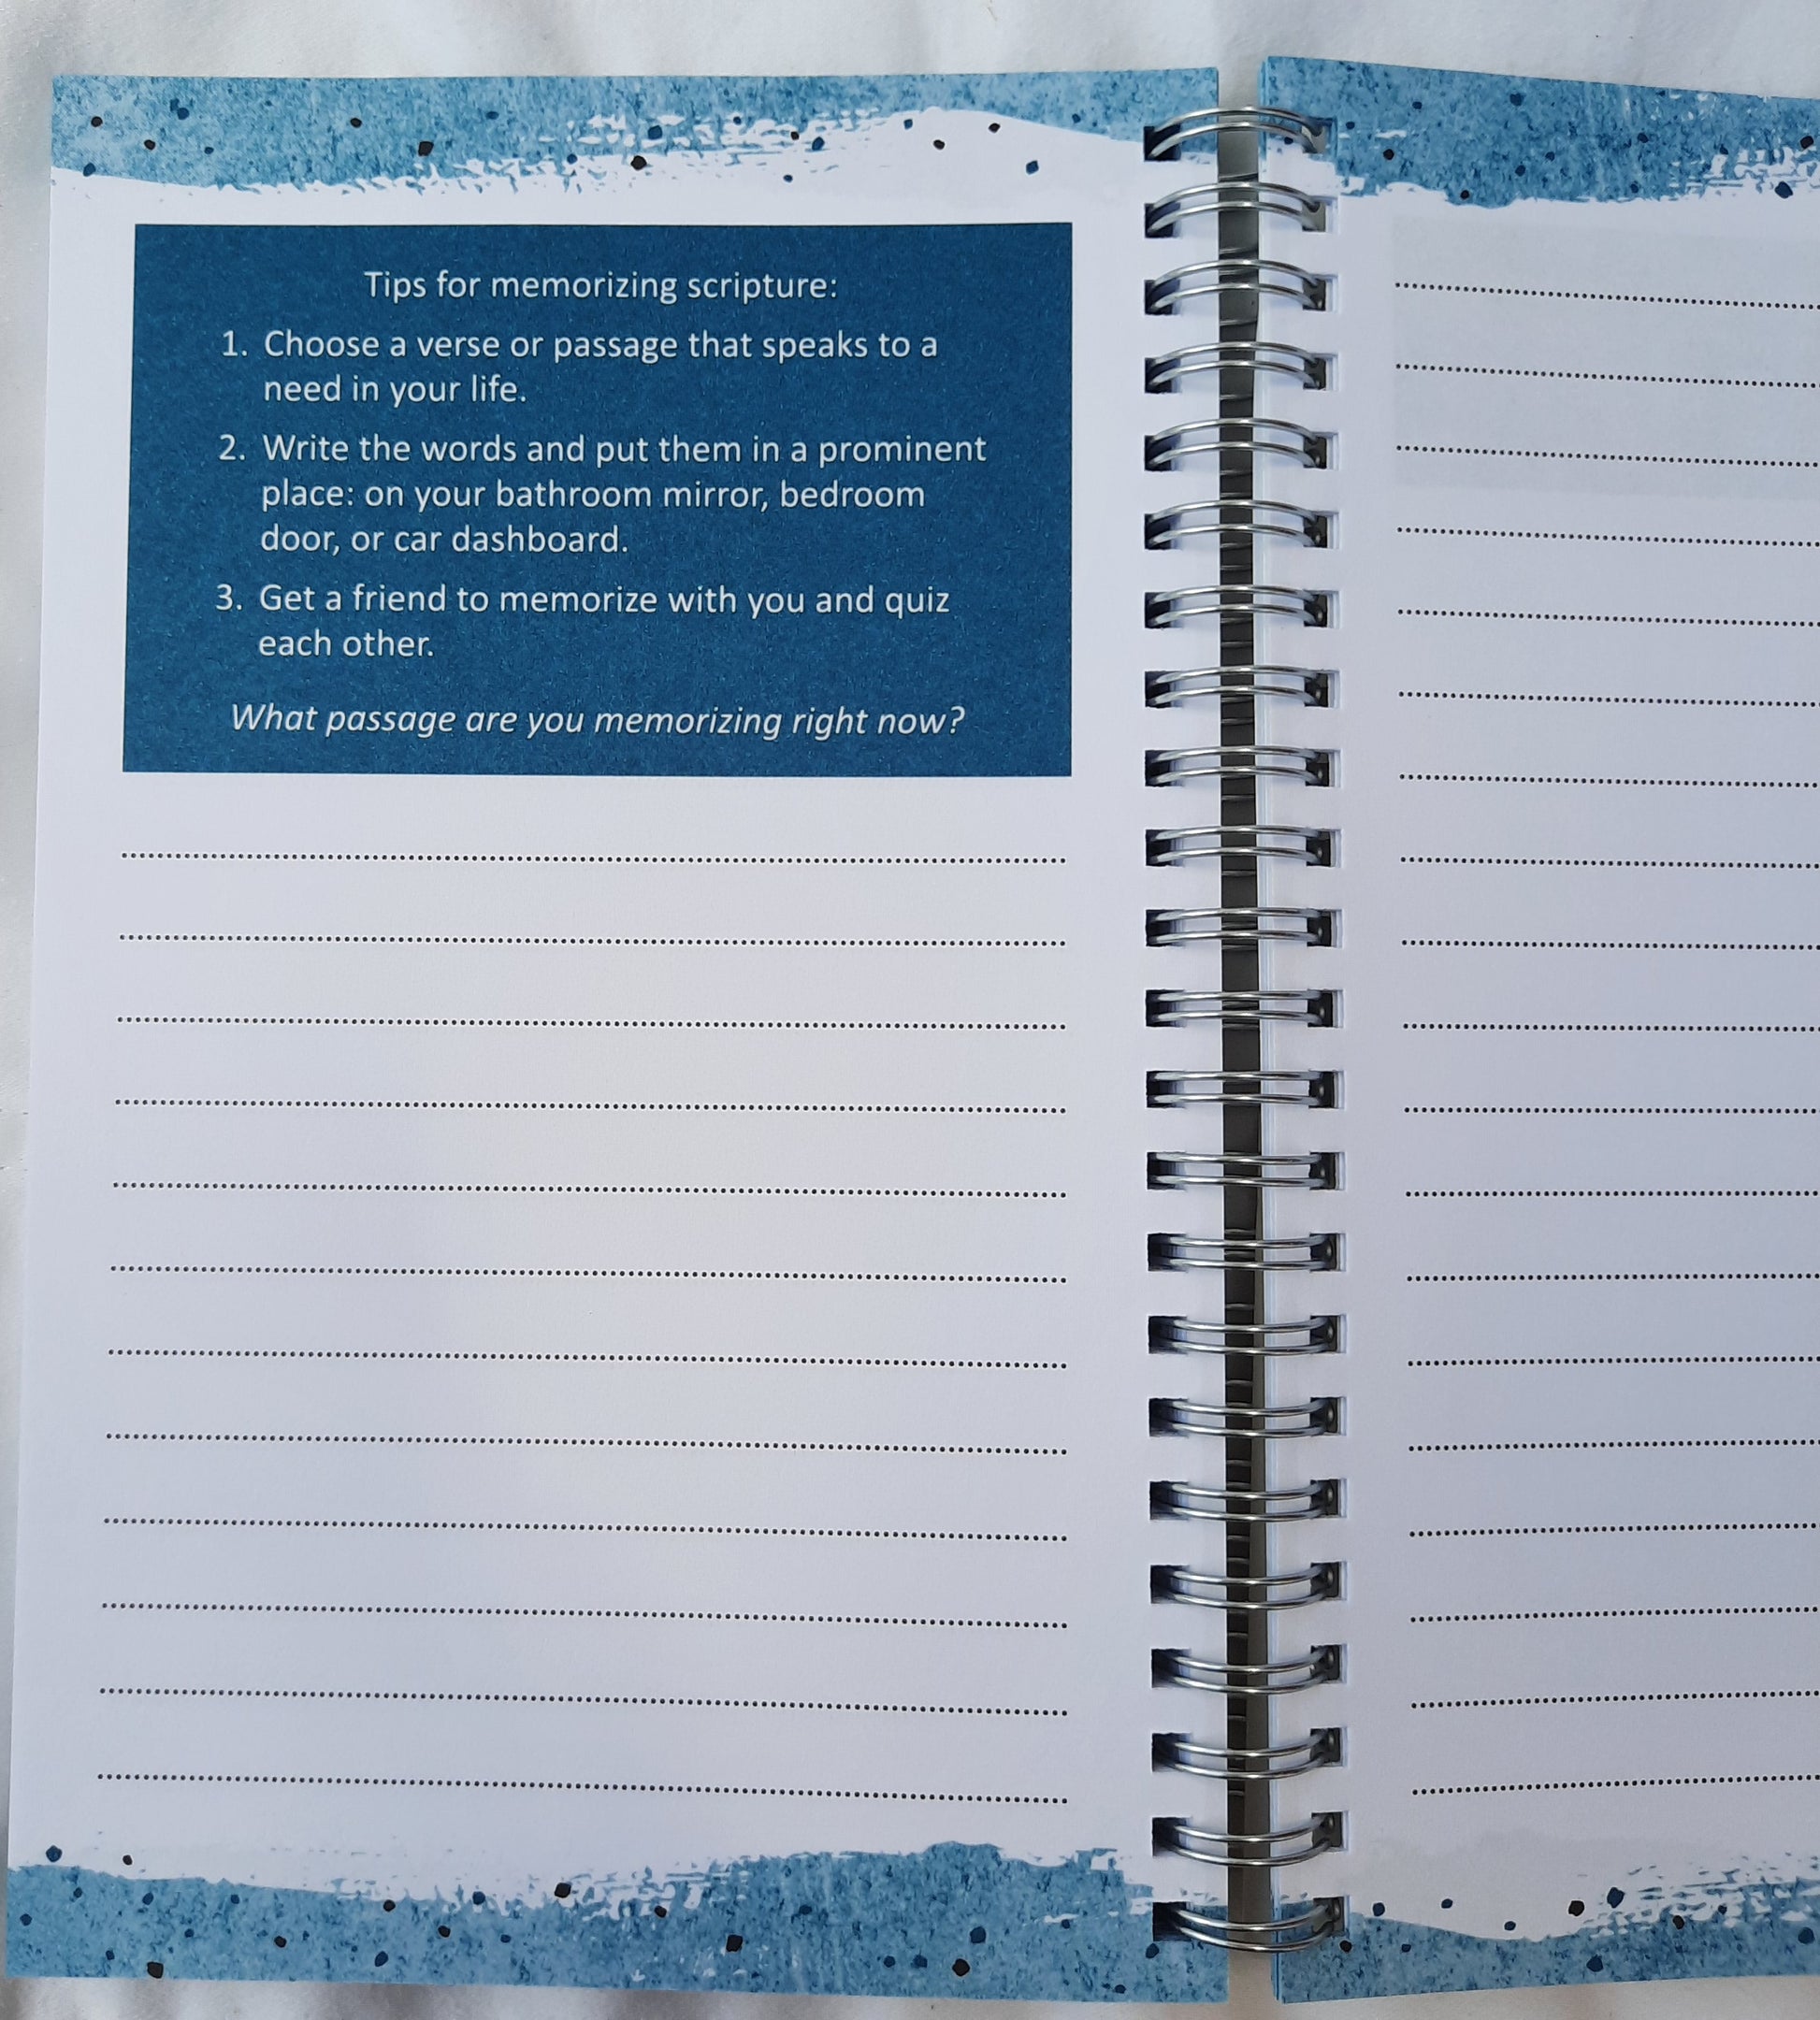 Tips for memorizing scripture:
1. Choose a verse or passage that speaks to a
need in your life.
2. Write the words and put them in a prominent
place: on your bathroom mirror, bedroom
door, or car dashboard.
3. Get a friend to memorize with you and quiz
each other.
What passage are you memorizing right now?